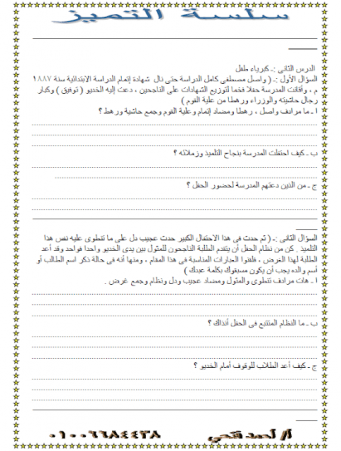 سلسلة التميز
الدرس الثاني :. كبرياء طفل
السؤال الأول :. ( واصل مصطفى كامل الدراسة حتى نال شهادة إتمام الدراسة الابتدائية سنة ١٨٨٧
م ، وأقامت المدرسة حفلا فخما لتوزيع الشهادات على الناجحين ، دعت إليه الخديو ( توفيق ) وكبار
رجال حاشيته والوزراء ورهطا من علية القوم )
١ - ما مرادف واصل ، رهطا ومضاد إتمام وعلية القوم وجمع حاشية ورهط ؟
ب - كيف احتفلت المدرسة بنجاح التلميذ وزملائه ؟
ج - من الذين دعتهم المدرسة لحضور الحفل ؟
السؤال الثاني :. ( ثم حدث فى هذا الاحتفال الكبير حدث عجيب دل على ما تنطوى عليه نفس هذا
التلميذ . كن من نظام الحفل أن يتقدم الطلبة الناجحون للمثول بين يدى الخديو واحدا فواحد وقد أعد
الطلبة لهذا العرض ، فلقنوا العبارات المناسبة في هذا المقام ، ومنها أنه فى حالة ذكر اسم الطالب أو
أسم والده يجب أن يكون مسبوقك بكلمة عبدك )
١ - هات مرادف تنطوى والمثول ومضاد عجيب ودل ونظام وجمع غرض .
ب - ما النظام المتتبع فى الحفل آنذاك ؟
ج - كيف أعد الطلاب للوقوف أمام الخديو ؟
أ/ أحمد فتحي ٠١٠٠٦٦٨٤٤٣٨